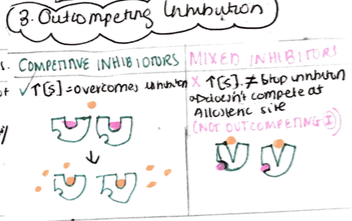 3. Outcompeting Inhibition
COMPETITIVE INHIBIOTORS
✓ ↑[S] = overcomes inhibition
MIXED INHIBITORS
X ↑[S] ≠ stop inhibition
→ Doesn't compete at
Allosteric site
(NOT OUTCOMPETING I)